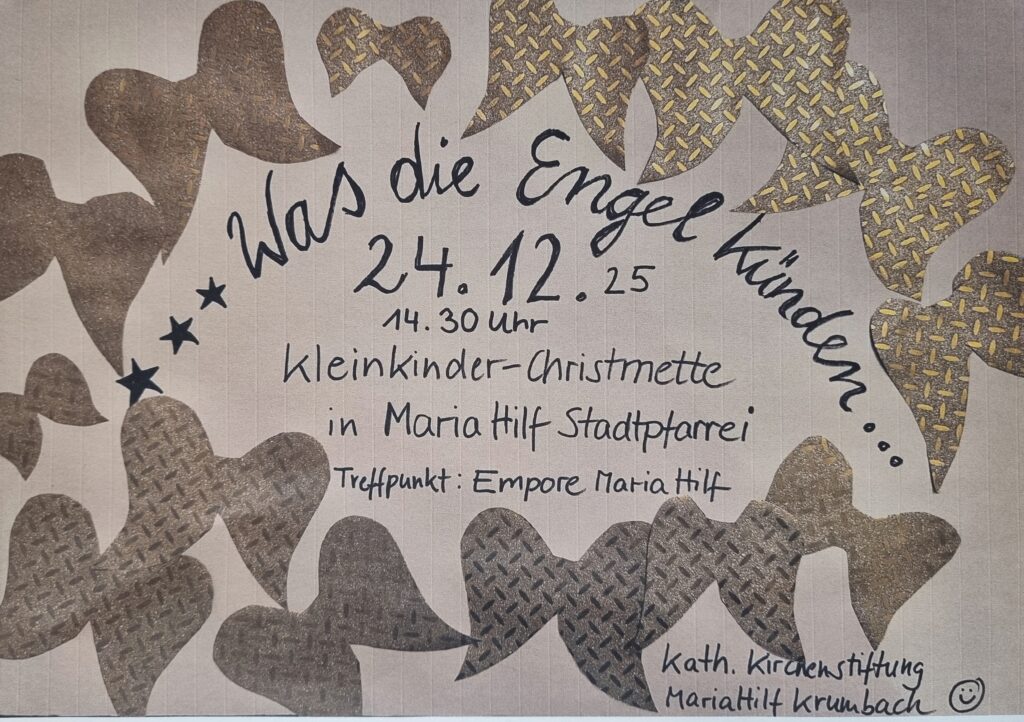 Was die Engel künden...
24.12.25
14.30 Uhr
Kleinkinder-Christmette
in Maria Hilf Stadtpfarrei
Treffpunkt: Empore Maria Hilf
Kath. Kirchenstiftung
Maria Hilf Krumbach